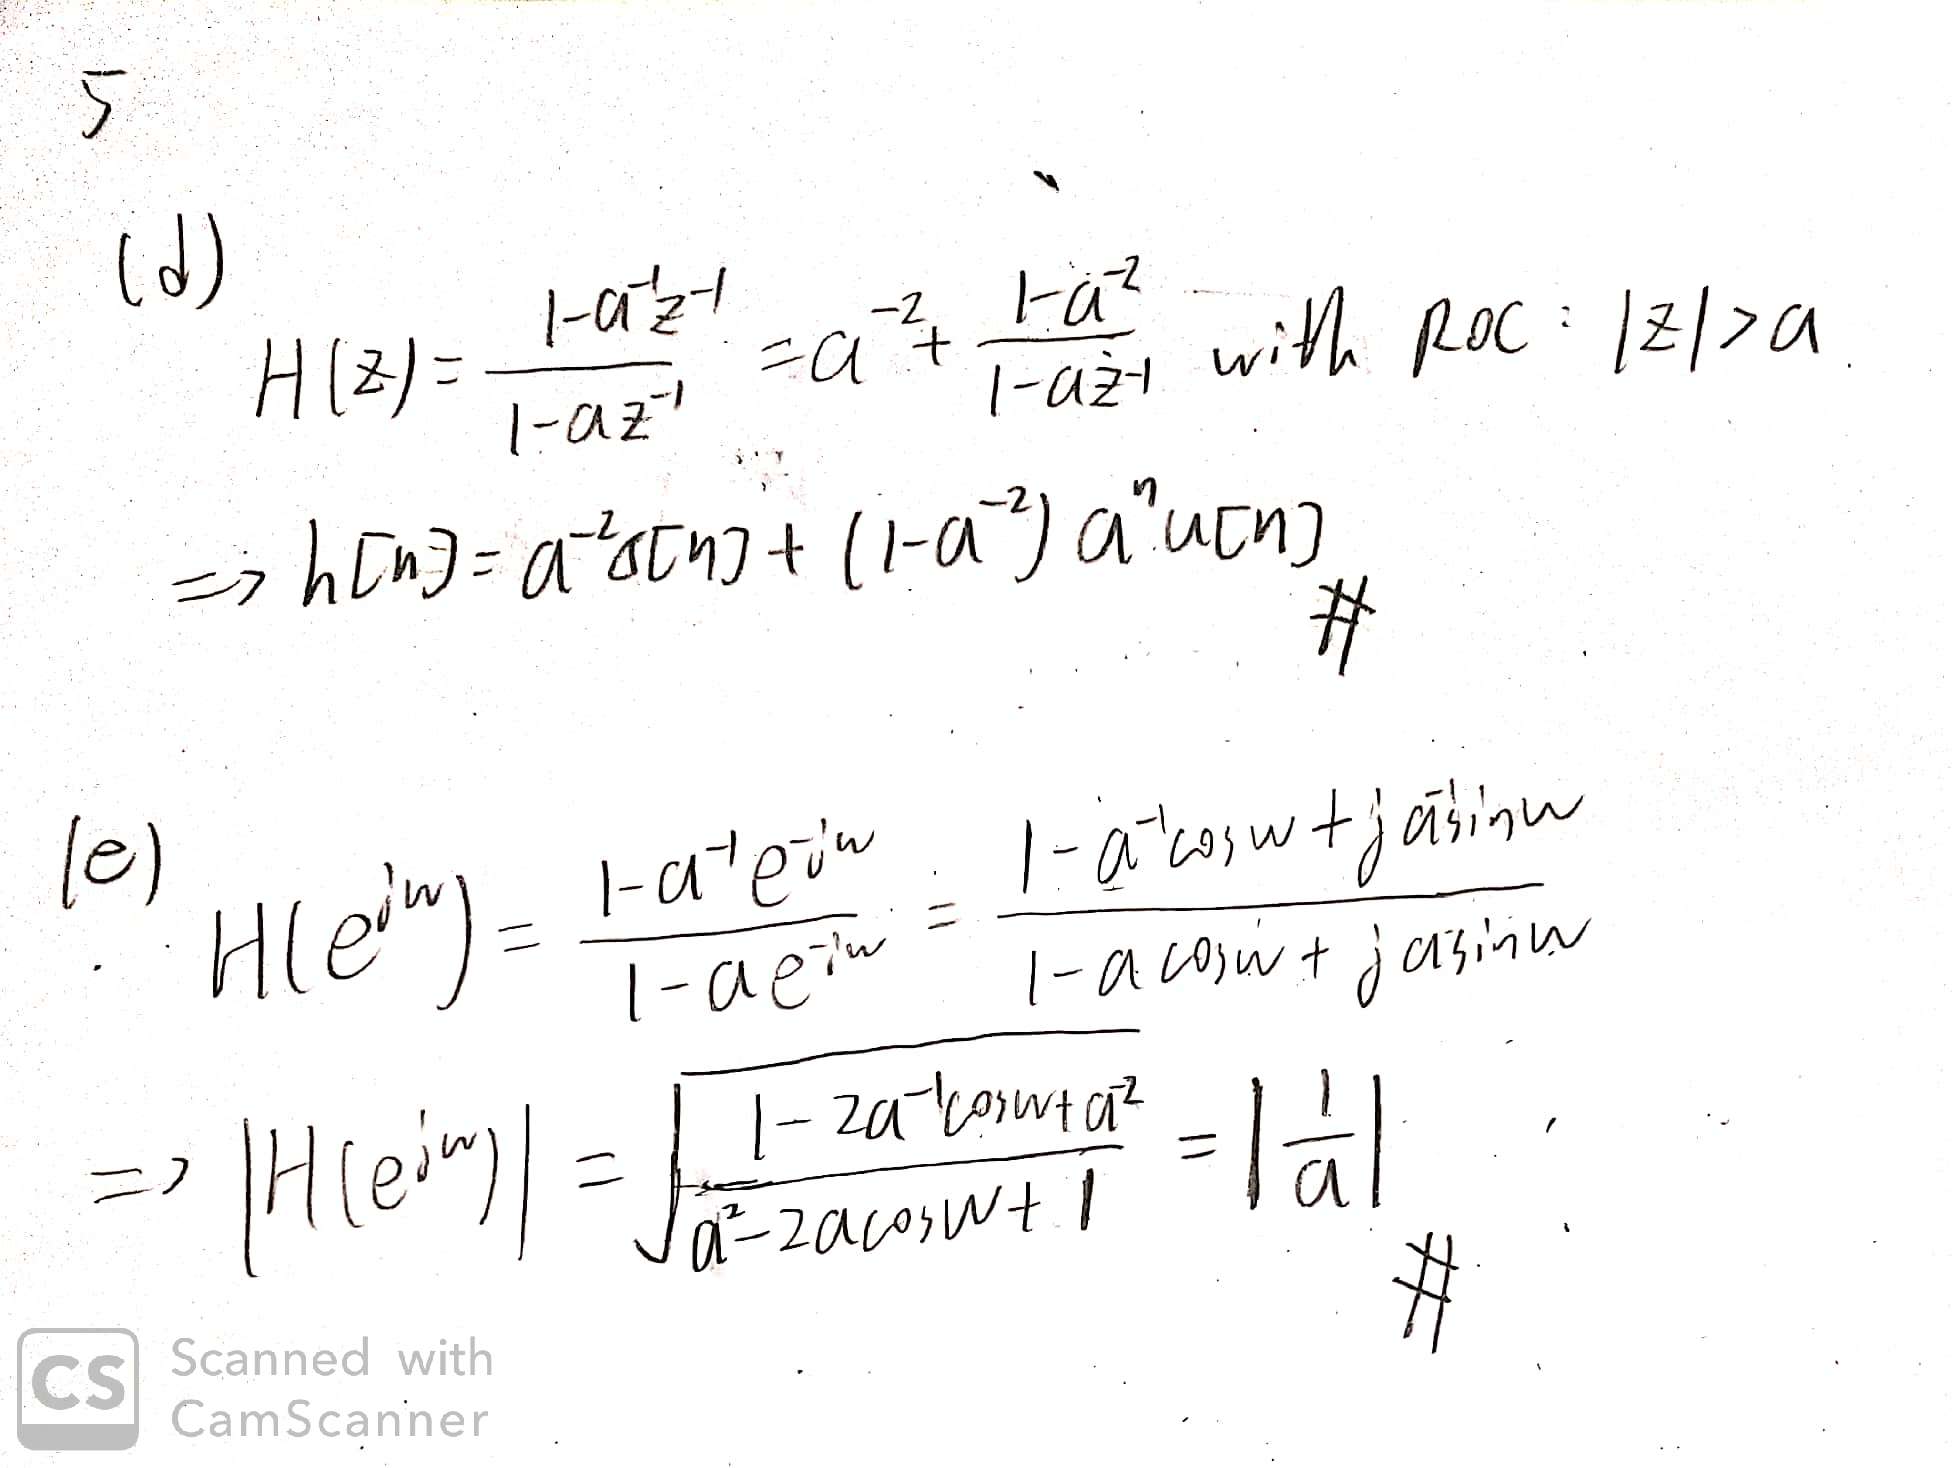 5
(d)
H(z) = \frac{1-a^{-1}z^{-1}}{1-az^{-1}} = a^{-2} + \frac{1-a^{-2}}{1-az^{-1}} with ROC : |z|>a.
=> h[n] = a^{-2}δ[n] + (1-a^{-2}) a^n u[n] #
(e)
H(e^{jw}) = \frac{1-a^{-1}e^{-jw}}{1-ae^{-jw}} = \frac{1-a^{-1}cosw+ja^{-1}sinw}{1-acosw+jasinw}
=> |H(e^{jw})| = \sqrt{\frac{1-2a^{-1}cosw+a^{-2}}{a^2-2acosw+1}} = |\frac{1}{a}| #
CS Scanned with
CamScanner